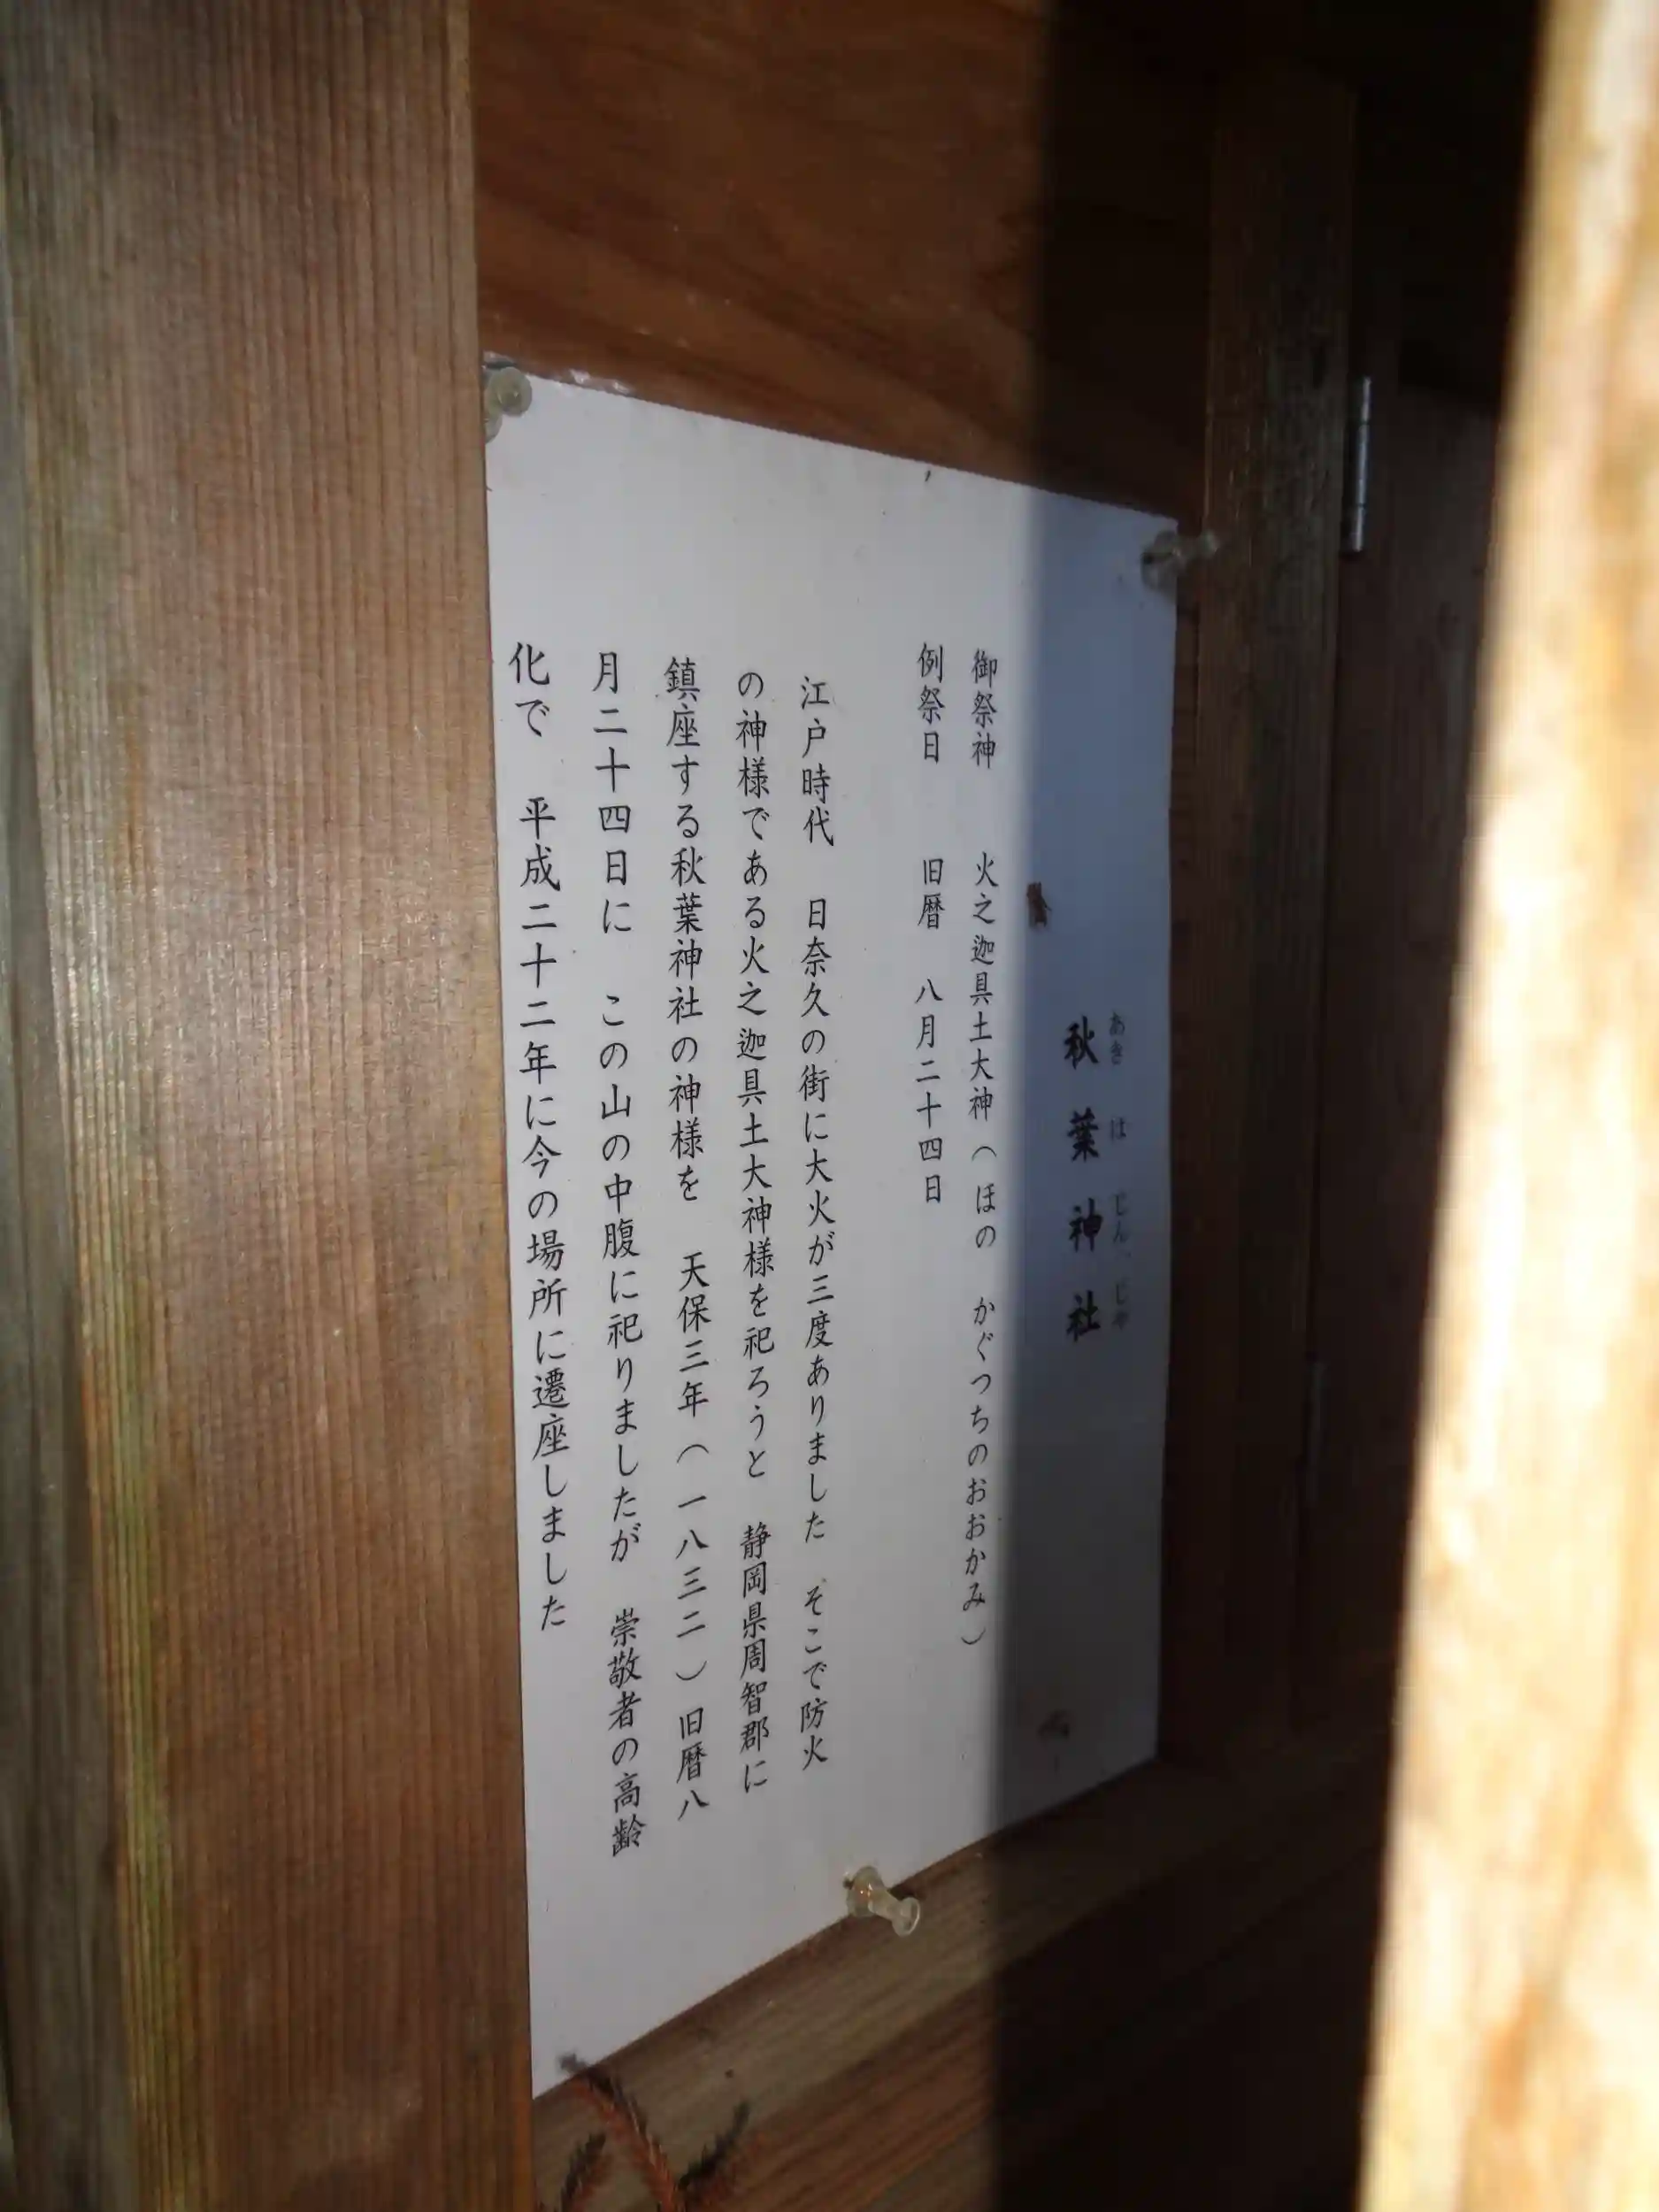 秋葉神社
あき は じんじゃ
御祭神 火之迦具土大神(ほの かぐつちのおおかみ)
例祭日 旧暦 八月二十四日
江戸時代 日奈久の街に大火が三度ありました そこで防火
の神様である火之迦具土大神様を祀ろうと 静岡県周智郡に
鎮座する秋葉神社の神様を 天保三年(一八三二)旧暦八
月二十四日に この山の中腹に祀りましたが 崇敬者の高齢
化で 平成二十二年に今の場所に遷座しました